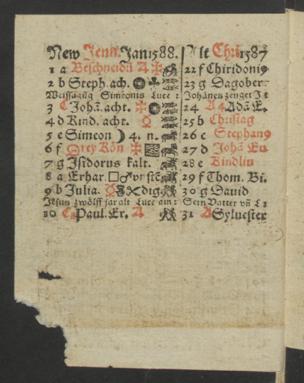 New Jenn. Jan 1588. Alt Chri 1587
1 a Beschneidũ 22 f Chiridoniꝰ
2 b Steph. ach. 23 g Dagober
Simeonis Luce 2 Johannē
3 c Johā. acht. 24 Adã E.
4 d Kind. acht. 25 b Christag
5 e Simeon ☽ 4. n. 26 c Stephanꝰ
6 f Drey Kön 27 d Johã Eu
7 g Isidorus kalt. 28 e Kindlin
8 a Erhar. □♂ 29 f Thom. Bi.
9 b Julia. dig. 30 g David
Jesus zwölff jar alt Luce Sein Vatter vñ L 2
10 c Paul. Er. 31 A Sylvester